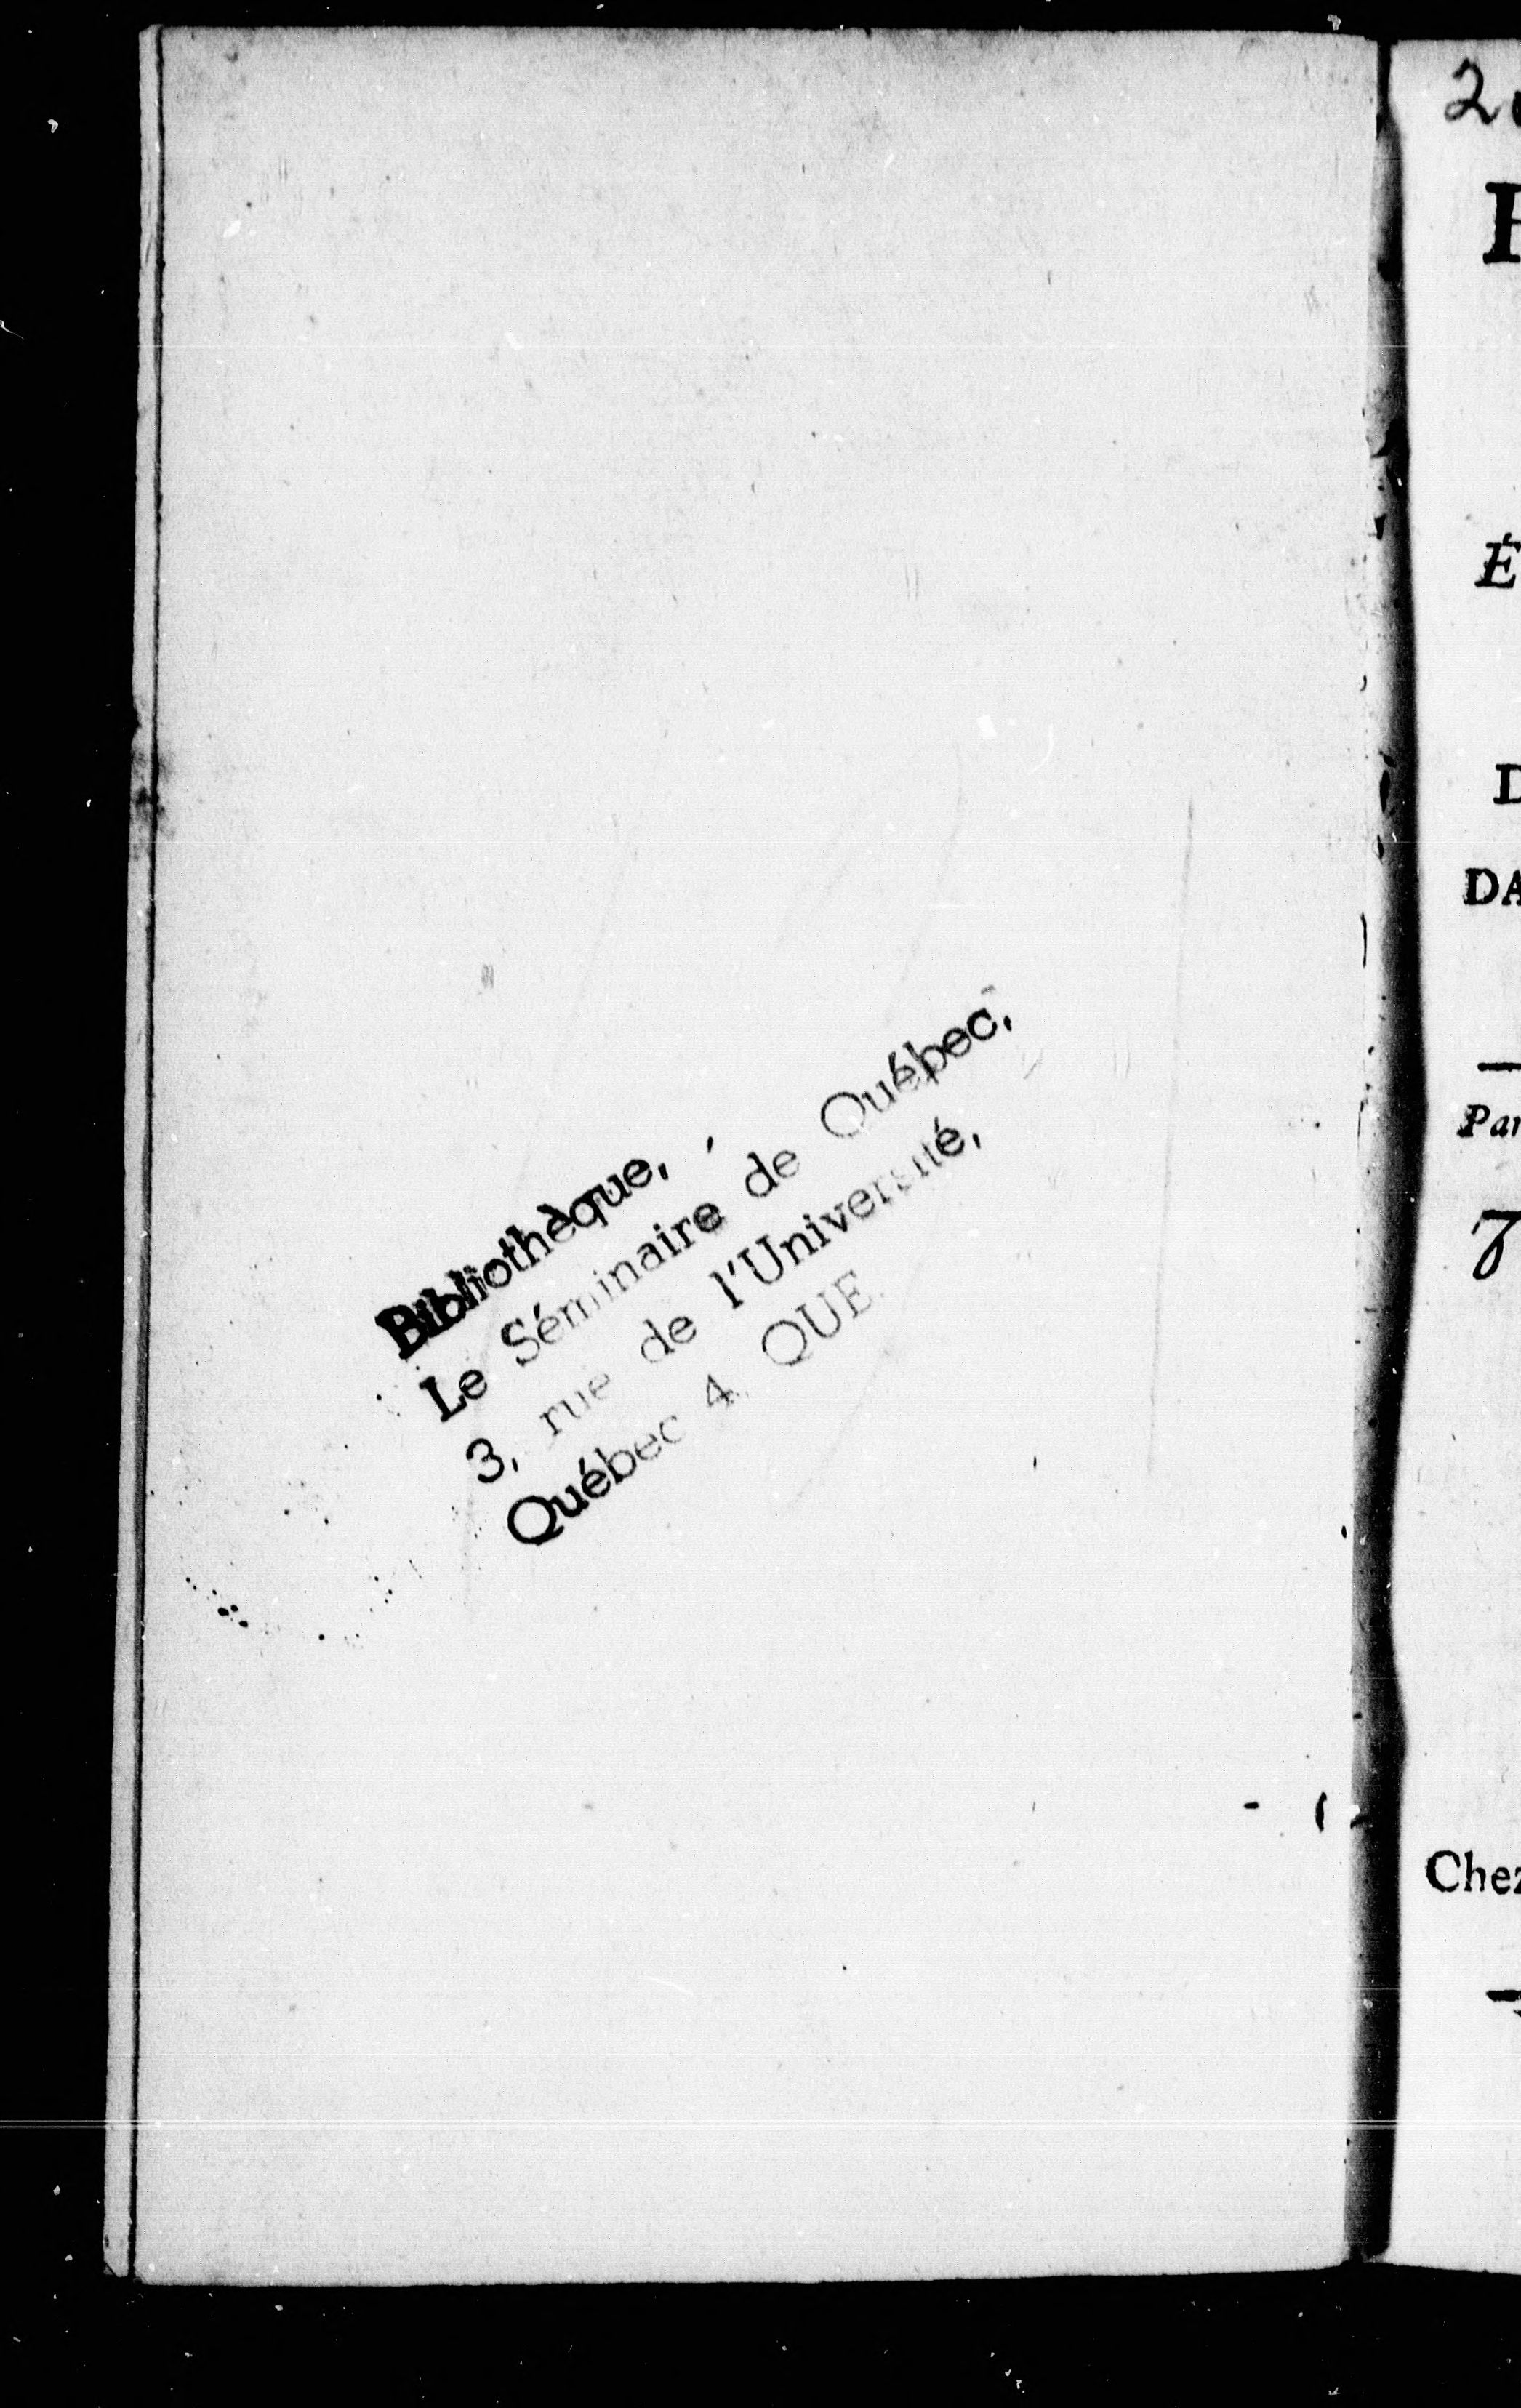 Bibliothèque,
Le Séminaire de Québec,
3, rue de l'Université,
Québec 4, QUE.
É
DA
Par
Chez